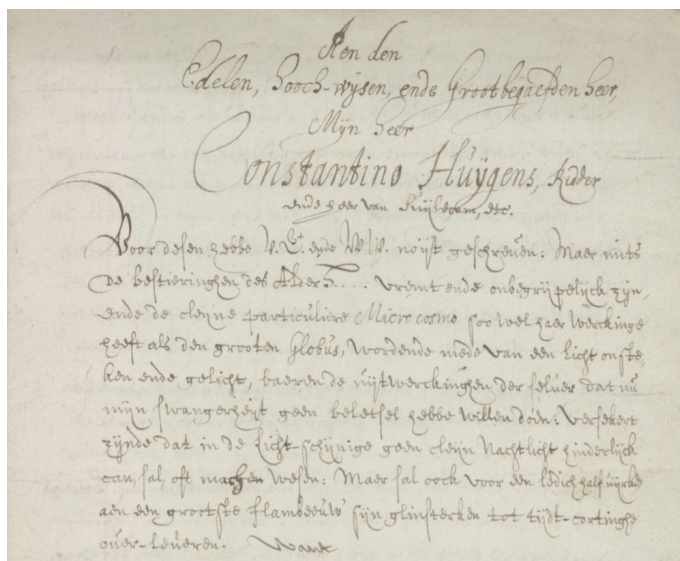 Aen den
Edelen, hooch-wijsen, ende Grootbegaefden heer,
Mijn heer
Constantino Huÿgens, Ridder
ende heer van Zuÿlecom, etc.
Voor desen hebbe V. E. ende W. noÿt geschreven: Maer mits
De bestieringhen des Alder H.... vremt ende onbegrijpelijck zijn,
ende de cleÿne particuliere Microcosmo soo wel haer werckinge
heeft als den grooten Globus, wordende mede van een licht onste-
ken ende gelicht, baeren de uÿtwerckinghen der selver dat nu
mijn swangerheÿt geen beletsel hebbe willen doen: versekert
zijnde dat in de licht-schijnige geen cleijn Nachtlicht hinderlijck
can, sal, oft machen wesen: Maer sal oock voor een ledich half uÿrke
aen een grootste flambeeuw sijn glinsterken tot tijdt-cortinghe
over-leveren. Want